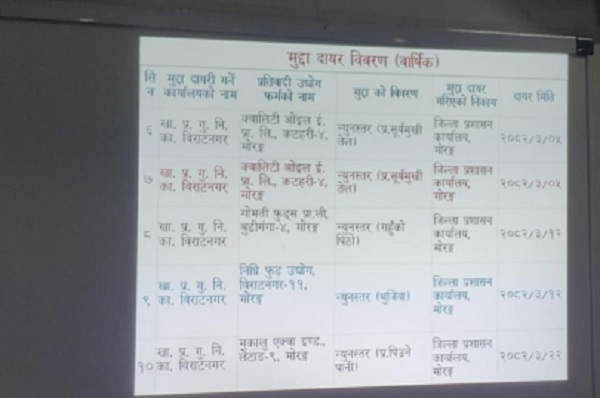 मुद्दा दायर विवरण (वार्षिक)
सि न | मुद्दा दायरी गर्ने कार्यालयको नाम | प्रतिवादी उद्योग फर्मको नाम | मुद्दा को विवरण | मुद्दा दायर गरिएको निकाय | दायर मिति
६ | खा. प्र. गु. नि. का. विराटनगर | क्वालिटी ओइल ई. प्रा. लि., कटहरी-४, मोरङ्ग | न्युनस्तर (प्र.सूर्यमुखी तेल) | जिल्ला प्रशासन कार्यालय, मोरङ्ग | २०८२/३/०५
७ | खा. प्र. गु. नि. का. विराटनगर | क्वालिटी ओइल ई. प्रा. लि., कटहरी-४, मोरङ्ग | न्युनस्तर (प्र.सूर्यमुखी तेल) | जिल्ला प्रशासन कार्यालय, मोरङ्ग | २०८२/३/०५
८ | खा. प्र. गु. नि. का. विराटनगर | गोमती फुड्स प्रा.ली, बुढीगंगा-४, मोरङ्ग | न्युनस्तर (गहुँको पिठो) | जिल्ला प्रशासन कार्यालय, मोरङ्ग | २०८२/३/१२
९ | खा. प्र. गु. नि. का. विराटनगर | निधि फुड उद्योग, विराटनगर-११, मोरङ्ग | न्युनस्तर (भुजिया) | जिल्ला प्रशासन कार्यालय, मोरङ्ग | २०८२/३/१२
१० | खा. प्र. गु. नि. का. विराटनगर | मकालु एक्वा इण्ड., लेटाङ-९, मोरङ्ग | न्युनस्तर (प्र.पिउने पानी) | जिल्ला प्रशासन कार्यालय, मोरङ्ग | २०८२/३/२२